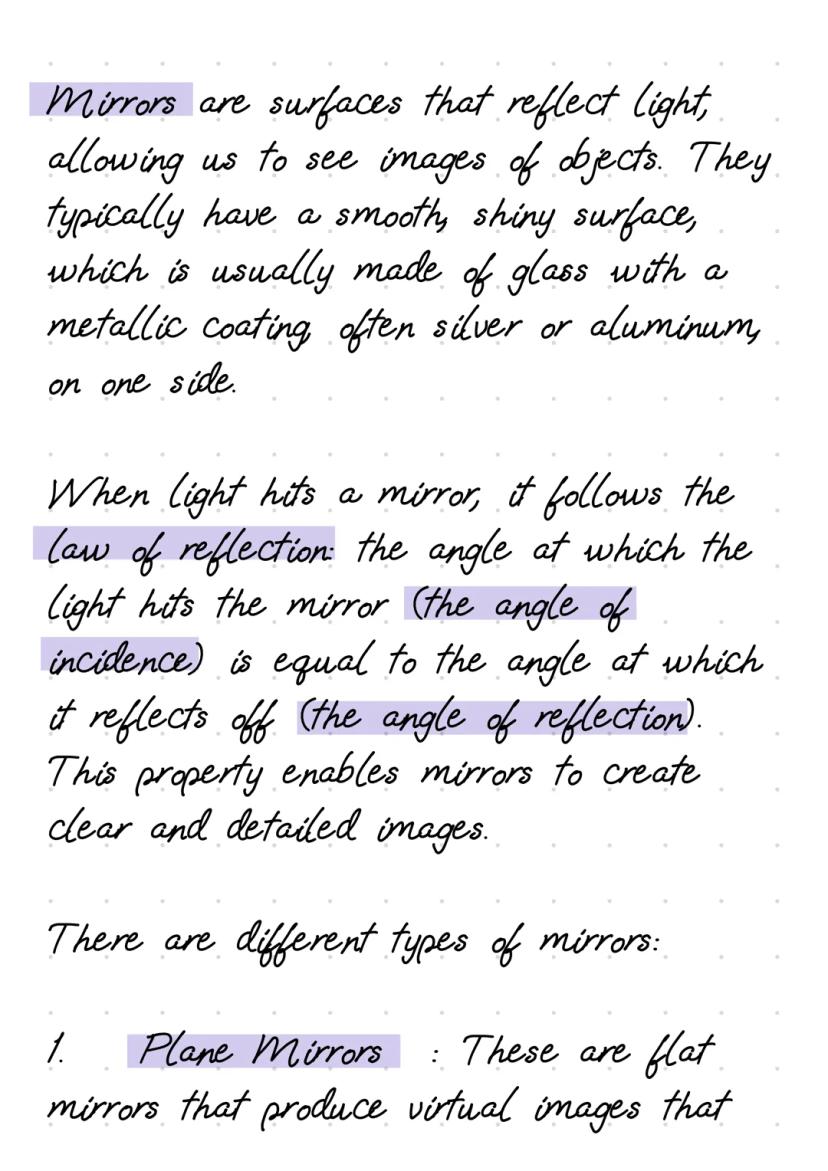 Mirrors are surfaces that reflect light,
allowing us to see images of objects. They
typically have a smooth, shiny surface,
which is usually made of glass with a
metallic coating, often silver or aluminum,
on one side.
When light hits a mirror, it follows the
law of reflection: the angle at which the
light hits the mirror (the angle of
incidence) is equal to the angle at which
it reflects off (the angle of reflection).
This property enables mirrors to create
clear and detailed images.
There are different types of mirrors:
1. Plane Mirrors : These are flat
mirrors that produce virtual images that